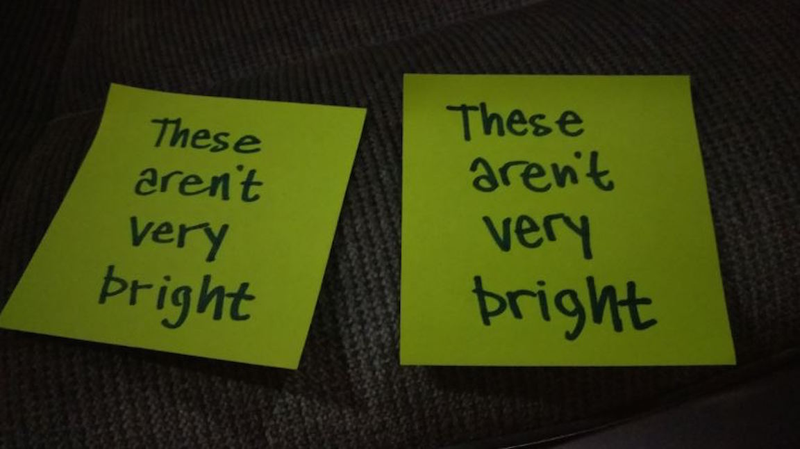 These
aren't
very
bright
These
aren't
very
bright